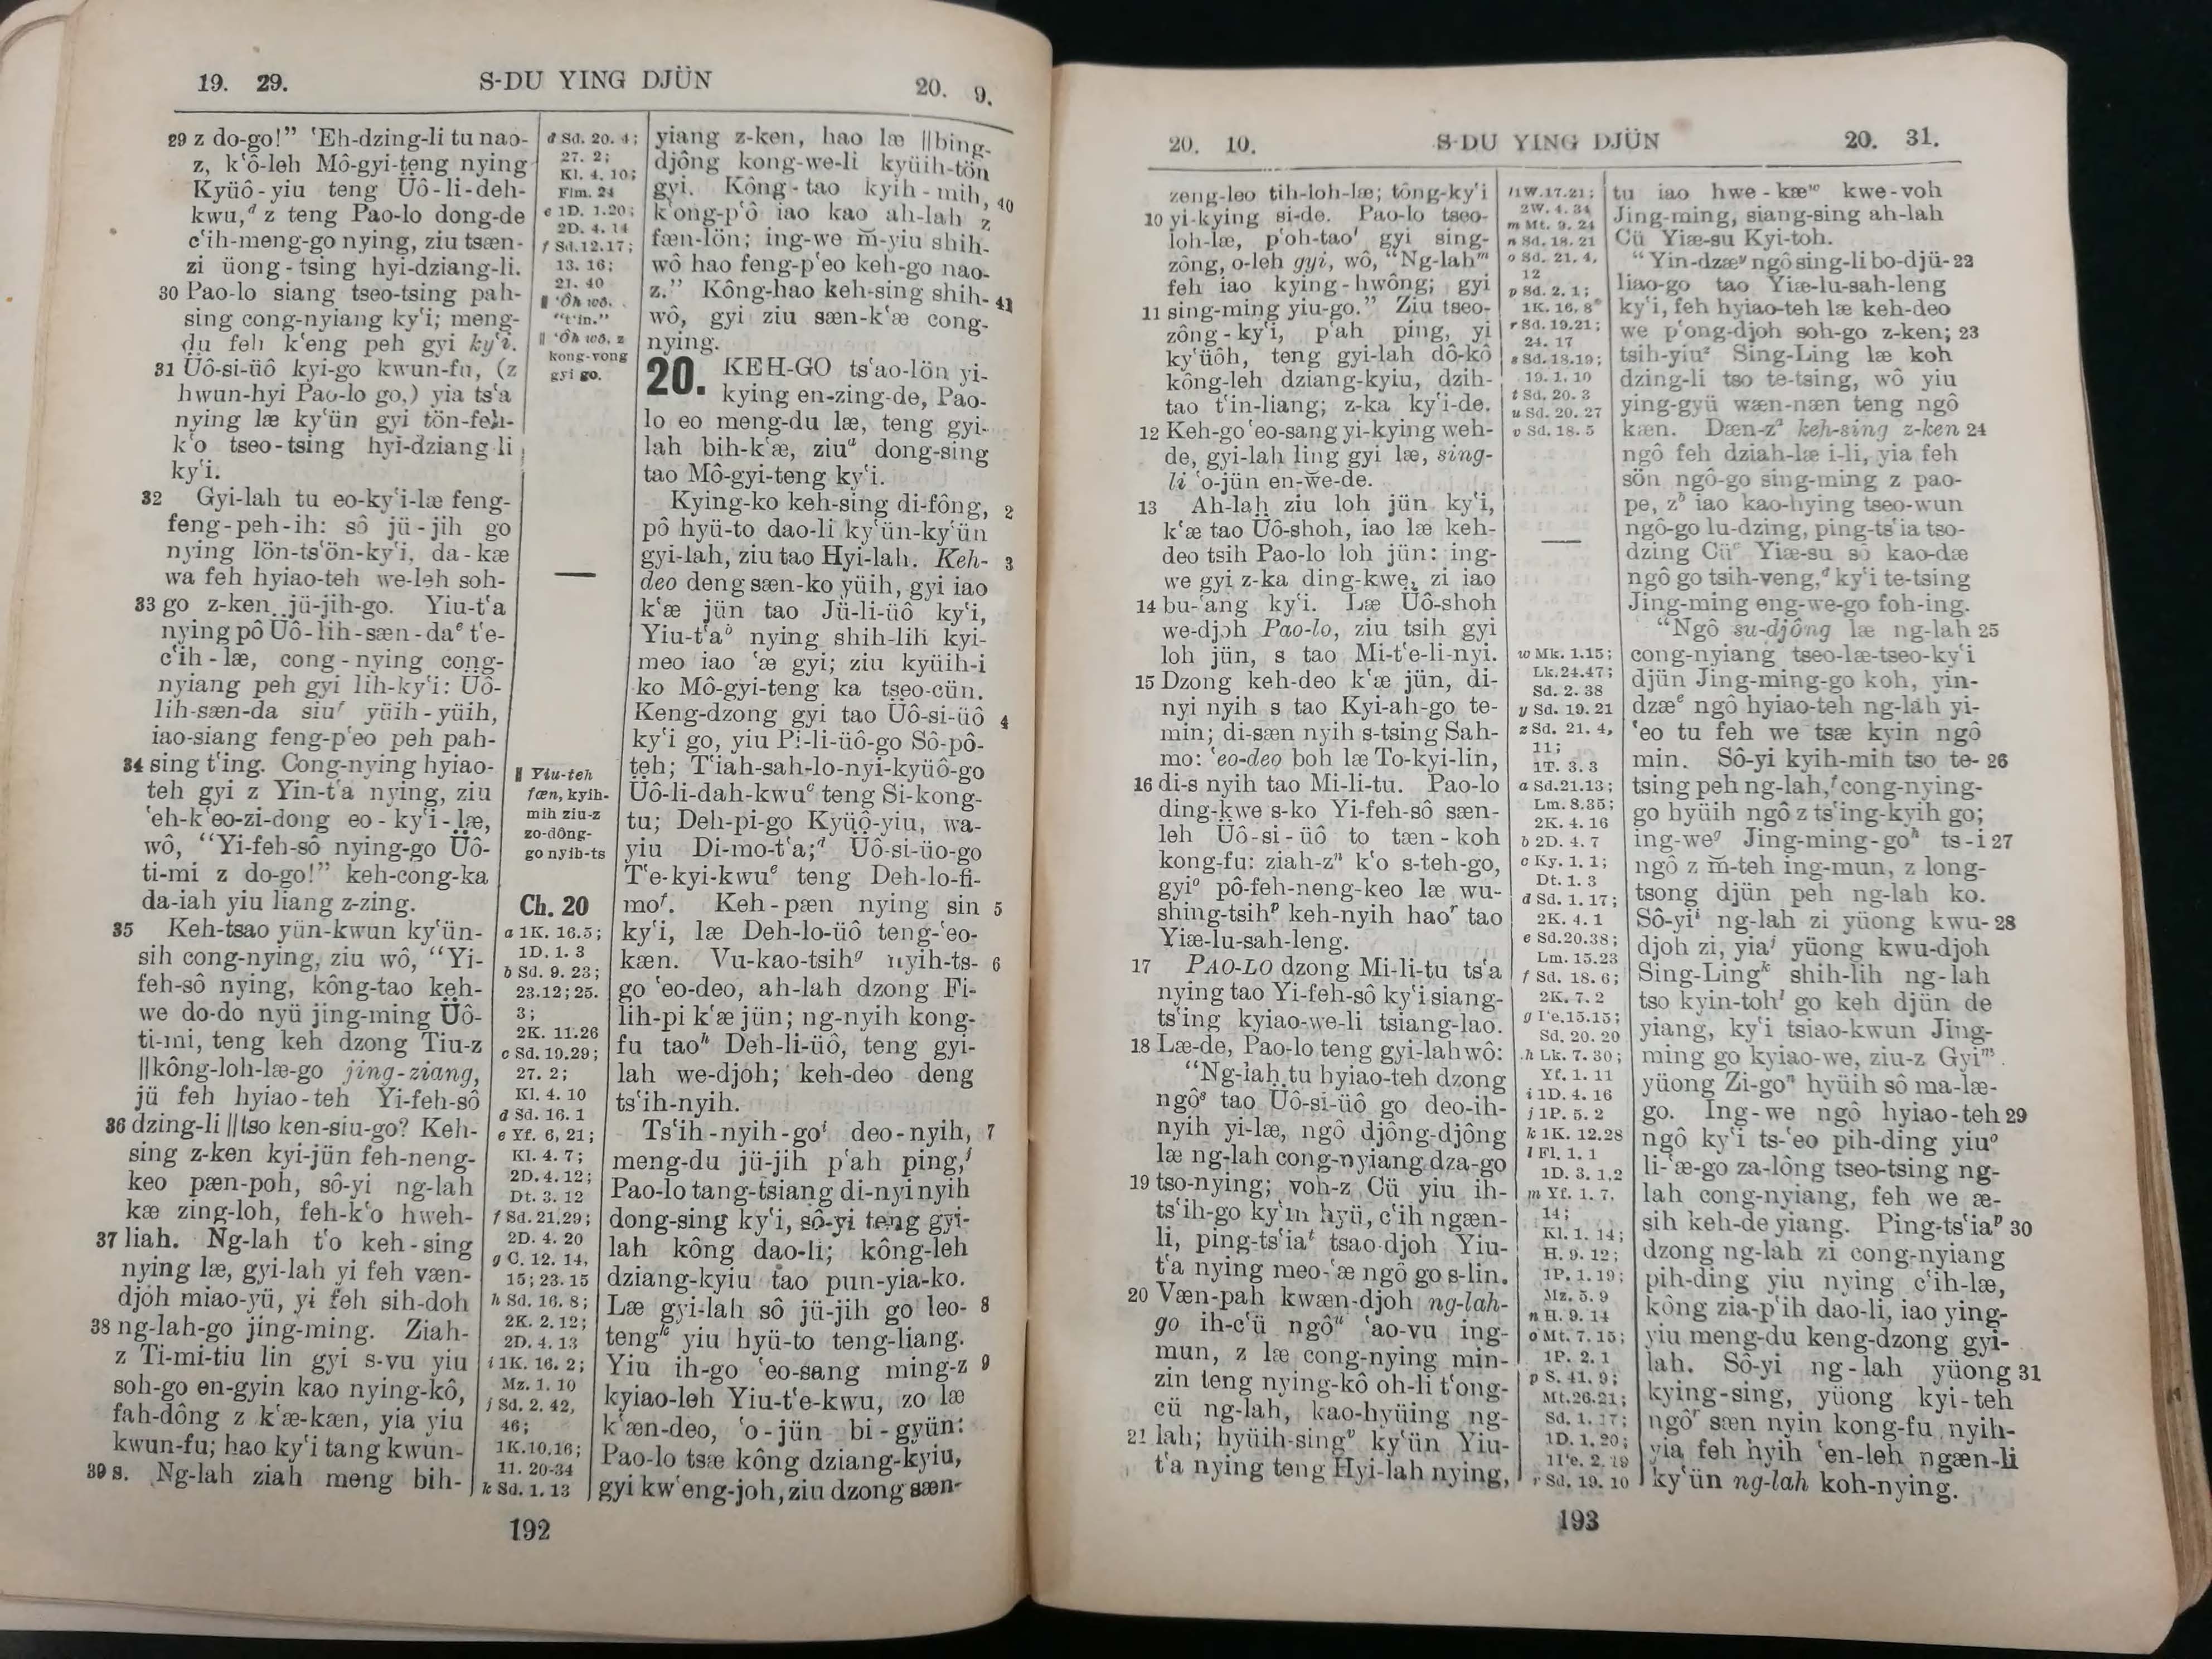 19. 29.
S-DU YING DJÜN
20. 9.
29 z do-go!” ʻEh-dzing-li tu nao-
z, kʻô-leh Mô-gyi-teng nying
Kyüô-yiu teng Üô-li-deh-
kwu,ᵈ z teng Pao-lo dong-de
cʻih-meng-go nying, ziu tsæn-
zi üong-tsing hyi-dziang-li.
30 Pao-lo siang tseo-tsing pah-
sing cong-nyiang kyʻi; meng-
du feh kʻeng peh gyi kyʻi.
31 Üô-si-üô kyi-go kwun-fu, (z
hwun-hyi Pao-lo go,) yia tsʻa
nying læ kyʻün gyi tön-feh-
kʻo tseo-tsing hyi-dziang-li
kyʻi.
32 Gyi-lah tu eo-kyʻi-læ feng-
feng-peh-ih: sô jü-jih go
nying lön-tsʻön-kyʻi, da-kæ
wa feh hyiao-teh we-leh soh-
33 go z-ken jü-jih-go. Yiu-tʻa
nying pô Üô-lih-sæn-daᵉ tʻe-
cʻih-læ, cong-nying cong-
nyiang peh gyi lih-kyʻi: Üô-
lih-sæn-da siuᶠ yüih-yüih,
iao-siang feng-pʻeo peh pah-
34 sing tʻing. Cong-nying hyiao-
teh gyi z Yin-tʻa nying, ziu
ʻeh-kʻeo-zi-dong eo-kyʻi-læ,
wô, “Yi-feh-sô nying-go Üô-
ti-mi z do-go!” keh-cong-ka
da-iah yiu liang z-zing.
35 Keh-tsao yün-kwun kyʻün-
sih cong-nying, ziu wô, “Yi-
feh-sô nying, kông-tao keh-
we do-do nyü jing-ming Üô-
ti-mi, teng keh dzong Tiu-z
||kông-loh-læ-go jing-ziang,
jü feh hyiao-teh Yi-feh-sô
36 dzing-li ||tso ken-siu-go? Keh-
sing z-ken kyi-jün feh-neng-
keo pæn-poh, sô-yi ng-lah
kæ zing-loh, feh-kʻo hweh-
37 liah. Ng-lah tʻo keh-sing
nying læ, gyi-lah yi feh væn-
djoh miao-yü, yi feh sih-doh
38 ng-lah-go jing-ming. Ziah-
z Ti-mi-tiu lin gyi s-vu yiu
soh-go en-gyin kao nying-kô,
fah-dông z kʻæ-kæn, yia yiu
kwun-fu; hao kyʻi tang kwun-
39 s. Ng-lah ziah meng bih-
d Sd. 20. 4;
27. 2;
Kl. 4. 10;
Flm. 24
e 1D. 1.20;
2D. 4. 14
f Sd.12.17;
13. 16;
21. 40
|| ʻÔh wô.
“tʻin.”
|| ʻÔh wô, z
kong-vong
gyi go.
|| Yiu-teh
fæn, kyih-
mih ziu-z
zo-dông-
go nyih-ts
Ch. 20
a 1K. 16.5;
1D. 1. 3
b Sd. 9. 23;
23.12; 25.
3;
2K. 11.26
c Sd. 19.29;
27. 2;
Kl. 4. 10
d Sd. 16. 1
e Yf. 6, 21;
Kl. 4. 7;
2D. 4.12;
Dt. 3. 12
f Sd. 21.29;
2D. 4. 20
g C. 12. 14,
15; 23. 15
h Sd. 16. 8;
2K. 2. 12;
2D. 4. 13
i 1K. 16. 2;
Mz. 1. 10
j Sd. 2. 42,
46;
1K.10.16;
11. 20-34
k Sd. 1. 13
yiang z-ken, hao læ ||bing-
djông kong-we-li kyüih-tön
gyi. Kông-tao kyih-mih, 40
kʻong-pʻô iao kao ah-lah z
fæn-lön; ing-we m̄-yiu shih-
wô hao feng-pʻeo keh-go nao-
z.” Kông-hao keh-sing shih- 41
wô, gyi ziu sæn-kʻæ cong-
nying.
20. KEH-GO tsʻao-lön yi-
kying en-zing-de, Pao-
lo eo meng-du læ, teng gyi-
lah bih-kʻæ, ziuᵃ dong-sing
tao Mô-gyi-teng kyʻi.
Kying-ko keh-sing di-fông, 2
pô hyü-to dao-li kyʻün-kyʻün
gyi-lah, ziu tao Hyi-lah. Keh- 3
deo deng sæn-ko yüih, gyi iao
kʻæ jün tao Jü-li-üô kyʻi,
Yiu-tʻaᵇ nying shih-lih kyi-
meo iao ʻæ gyi; ziu kyüih-i
ko Mô-gyi-teng ka tseo-cün.
Keng-dzong gyi tao Üô-si-üô 4
kyʻi go, yiu Pi-li-üô-go Sô-pô-
teh; Tʻiah-sah-lo-nyi-kyüô-go
Üô-li-dah-kwuᶜ teng Si-kong-
tu; Deh-pi-go Kyüô-yiu, wa-
yiu Di-mo-tʻa;ᵈ Üô-si-üo-go
Tʻe-kyi-kwuᵉ teng Deh-lo-fi-
moᶠ. Keh-pæn nying sin 5
kyʻi, læ Deh-lo-üô teng-ʻeo-
kæn. Vu-kao-tsihᵍ nyih-ts- 6
go ʻeo-deo, ah-lah dzong Fi-
lih-pi kʻæ jün; ng-nyih kong-
fu taoʰ Deh-li-üô, teng gyi-
lah we-djoh; keh-deo deng
tsʻih-nyih.
Tsʻih-nyih-goⁱ deo-nyih, 7
meng-du jü-jih pʻah ping,ʲ
Pao-lo tang-tsiang di-nyi nyih
dong-sing kyʻi, sô-yi teng gyi-
lah kông dao-li; kông-leh
dziang-kyiu tao pun-yia-ko.
Læ gyi-lah sô jü-jih go leo- 8
tengᵏ yiu hyü-to teng-liang.
Yiu ih-go ʻeo-sang ming-z 9
kyiao-leh Yiu-tʻe-kwu, zo læ
kʻæn-deo, ʻo-jün bi-gyün:
Pao-lo tsæ kông dziang-kyiu,
gyi kwʻeng-joh, ziu dzong sæn-
192
20. 10.
S-DU YING DJÜN
20. 31.
zeng-leo tih-loh-læ; tông-kyʻi
10 yi-kying si-de. Pao-lo tseo-
loh-læ, pʻoh-taoˡ gyi sing-
zông, o-leh gyi, wô, “Ng-lahᵐ
feh iao kying-hwông; gyi
11 sing-ming yiu-go.” Ziu tseo-
zông-kyʻi, pʻah ping, yi
kyʻüôh, teng gyi-lah dô-kô
kông-leh dziang-kyiu, dzih-
tao tʻin-liang; z-ka kyʻi-de.
12 Keh-go ʻeo-sang yi-kying weh-
de, gyi-lah ling gyi læ, sing-
li ʻo-jün en-we-de.
13 Ah-lah ziu loh jün kyʻi,
kʻæ tao Üô-shoh, iao læ keh-
deo tsih Pao-lo loh jün: ing-
we gyi z-ka ding-kwe, zi iao
14 bu-ʻang kyʻi. Læ Üô-shoh
we-djoh Pao-lo, ziu tsih gyi
loh jün, s tao Mi-tʻe-li-nyi.
15 Dzong keh-deo kʻæ jün, di-
nyi nyih s tao Kyi-ah-go te-
min; di-sæn nyih s-tsing Sah-
mo: ʻeo-deo boh læ To-kyi-lin,
16 di-s nyih tao Mi-li-tu. Pao-lo
ding-kwe s-ko Yi-feh-sô sæn-
leh Üô-si-üô to tæn-koh
kong-fu: ziah-zⁿ kʻo s-teh-go,
gyiᵒ pô-feh-neng-keo læ wu-
shing-tsihᵖ keh-nyih haoʳ tao
Yiæ-lu-sah-leng.
17 PAO-LO dzong Mi-li-tu tsʻa
nying tao Yi-feh-sô kyʻi siang-
tsʻing kyiao-we-li tsiang-lao.
18 Læ-de, Pao-lo teng gyi-lah wô:
“Ng-lah tu hyiao-teh dzong
ngôˢ tao Üô-si-üô go deo-ih-
nyih yi-læ, ngô djông-djông
læ ng-lah cong-nyiang dza-go
19 tso-nying; voh-z Cü yiu ih-
tsʻih-go kyʻin hyü, cʻih ngæn-
li, ping-tsʻiaᵗ tsao-djoh Yiu-
tʻa nying meo-ʻæ ngô go s-lin.
20 Væn-pah kwæn-djoh ng-lah-
go ih-cʻü ngôᵘ ʻao-vu ing-
mun, z læ cong-nying min-
zin teng nying-kô oh-li tʻong-
cü ng-lah, kao-hyüing ng-
21 lah; hyüih-singᵛ kyʻün Yiu-
tʻa nying teng Hyi-lah nying,
l 1W.17.21;
2W. 4. 34
m Mt. 9. 24
n Sd. 18. 21
o Sd. 21. 4,
12
p Sd. 2. 1;
1K. 16. 8
r Sd. 19.21;
24. 17
s Sd.18.19;
19. 1. 10
t Sd. 20. 3
u Sd. 20. 27
v Sd. 18. 5
w Mk. 1.15;
Lk.24.47;
Sd. 2. 38
y Sd. 19. 21
z Sd. 21. 4,
11;
1T. 3. 3
a Sd.21.13;
Lm. 8.35;
2K. 4. 16
b 2D. 4. 7
c Ky. 1. 1;
Dt. 1. 3
d Sd. 1. 17;
2K. 4. 1
e Sd.20.38;
Lm. 15.23
f Sd. 18. 6;
2K. 7. 2
g 1ʻe.15.15;
Sd. 20. 20
h Lk. 7. 30;
Yf. 1. 11
i 1D. 4. 16
j 1P. 5. 2
k 1K. 12.28
l Fl. 1. 1
1D. 3. 1.2
m Yf. 1. 7,
14;
Kl. 1. 14;
H. 9. 12;
1P. 1.19;
Mz. 5. 9
n H. 9. 14
o Mt. 7. 15;
1P. 2. 1
p S. 41. 9;
Mt.26.21;
Sd. 1. 17;
1D. 1. 20;
1Iʻe. 2. 19
r Sd. 19. 10
tu iao hwe-kæʷ kwe-voh
Jing-ming, siang-sing ah-lah
Cü Yiæ-su Kyi-toh.
“Yin-dzæʸ ngô sing-li bo-djü- 22
liao-go tao Yiæ-lu-sah-leng
kyʻi, feh hyiao-teh læ keh-deo
we pʻong-djoh soh-go z-ken; 23
tsih-yiuᶻ Sing-Ling læ koh
dzing-li tso te-tsing, wô yiu
ying-gyü wæn-næn teng ngô
kæn. Dæn-zᵃ keh-sing z-ken 24
ngô feh dziah-læ i-li, yia feh
sön ngô-go sing-ming z pao-
pe, zᵇ iao kao-hying tseo-wun
ngô-go lu-dzing, ping-tsʻia tso-
dzing Cüᶜ Yiæ-su sô kao-dæ
ngô go tsih-veng,ᵈ kyʻi te-tsing
Jing-ming eng-we-go foh-ing.
“Ngô su-djông læ ng-lah 25
cong-nyiang tseo-læ-tseo-kyʻi
djün Jing-ming-go koh, yin-
dzæᵉ ngô hyiao-teh ng-lah yi-
ʻeo tu feh we tsæ kyin ngô
min. Sô-yi kyih-mih tso te- 26
tsing peh ng-lah,ᶠ cong-nying-
go hyüih ngô z tsʻing-kyih go;
ing-weᵍ Jing-ming-goʰ ts-i 27
ngô z m̄-teh ing-mun, z long-
tsong djün peh ng-lah ko.
Sô-yiⁱ ng-lah zi yüong kwu- 28
djoh zi, yiaʲ yüong kwu-djoh
Sing-Lingᵏ shih-lih ng-lah
tso kyin-tohˡ go keh djün de
yiang, kyʻi tsiao-kwun Jing-
ming go kyiao-we, ziu-z Gyiᵐ
yüong Zi-goⁿ hyüih sô ma-læ-
go. Ing-we ngô hyiao-teh 29
ngô kyʻi ts-ʻeo pih-ding yiuᵒ
li-ʻæ-go za-lông tseo-tsing ng-
lah cong-nyiang, feh we æ-
sih keh-de yiang. Ping-tsʻiaᵖ 30
dzong ng-lah zi cong-nyiang
pih-ding yiu nying cʻih-læ,
kông zia-pʻih dao-li, iao ying-
yiu meng-du keng-dzong gyi-
lah. Sô-yi ng-lah yüong 31
kying-sing, yüong kyi-teh
ngôʳ sæn nyin kong-fu nyih-
yia feh hyih ʻen-leh ngæn-li
kyʻün ng-lah koh-nying.
193